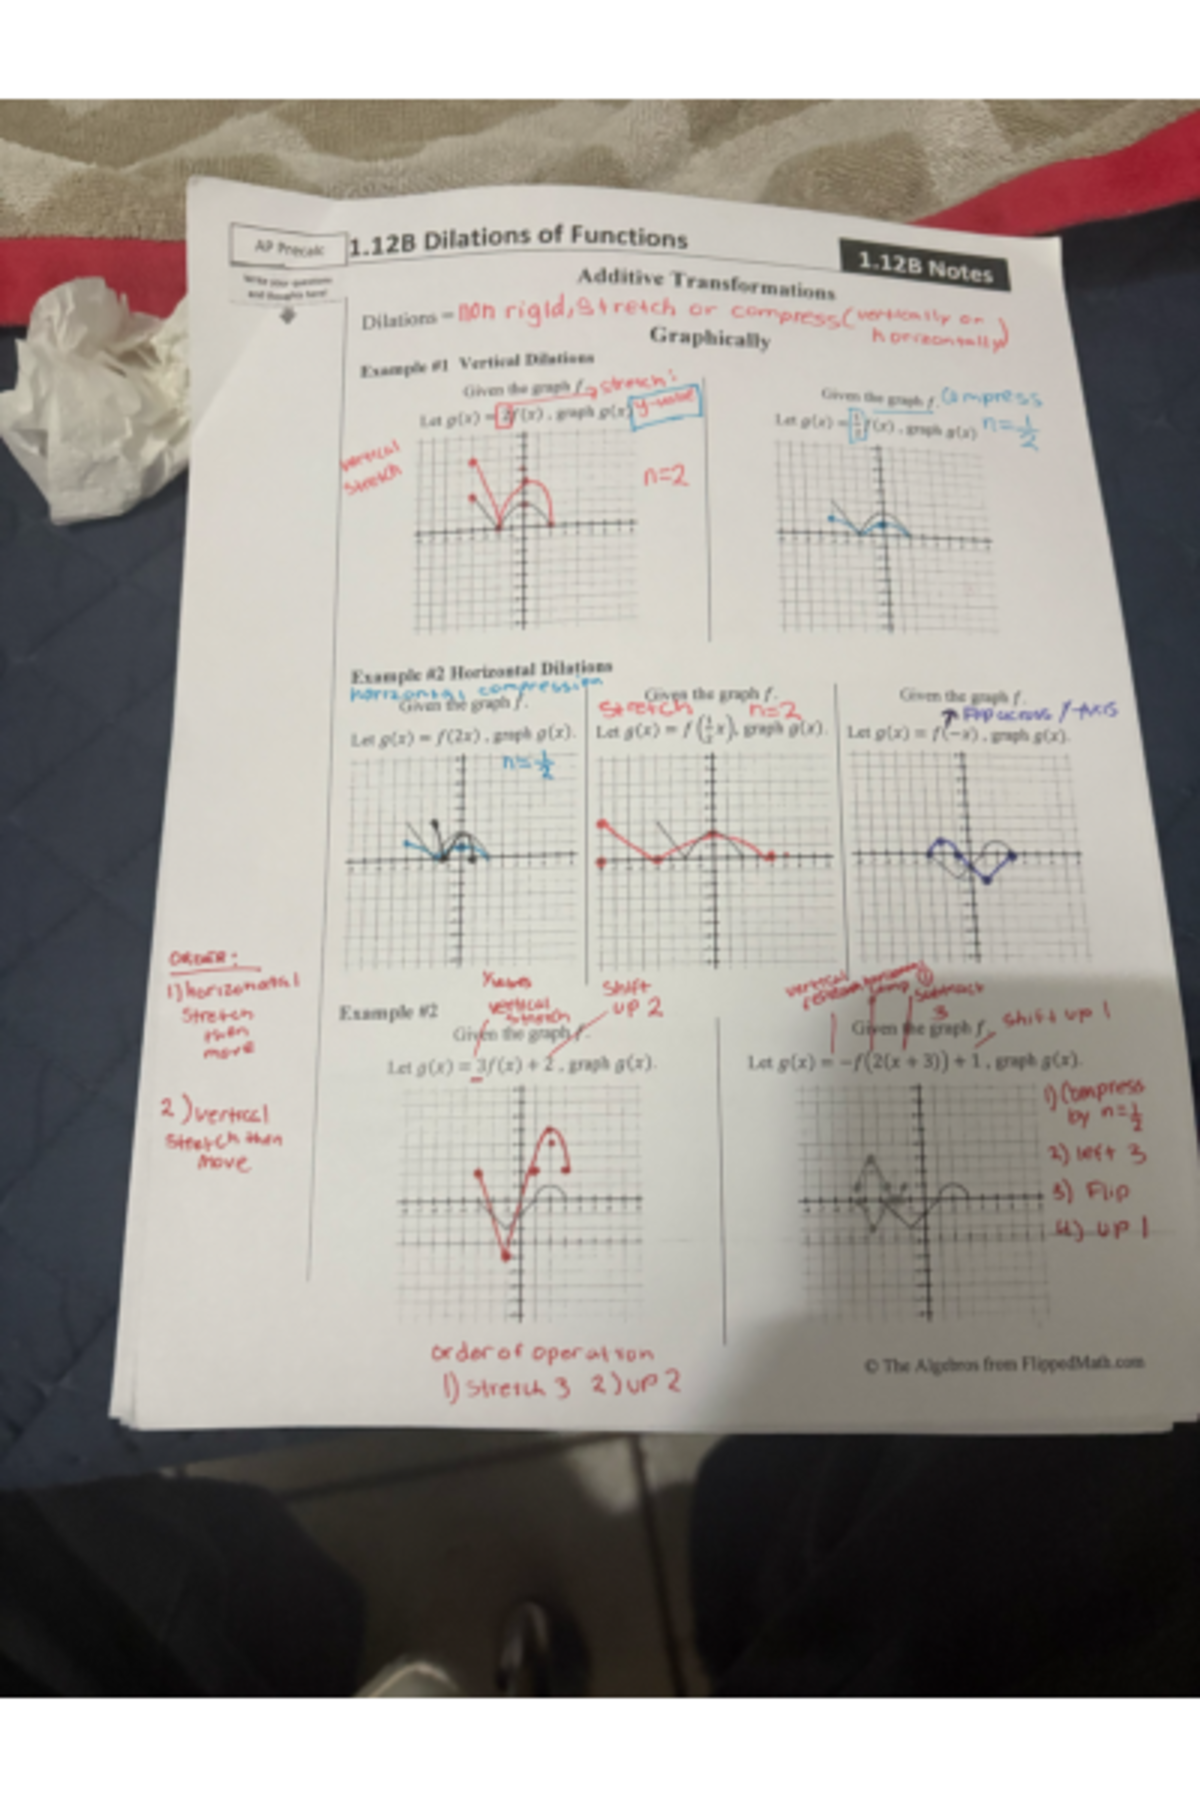 AP Precalc
1.12B Dilations of Functions
1.12B Notes
Write your questions
and thoughts here!
Additive Transformations
Dilations = non rigid, stretch or compress (vertically or
horizontally)
Graphically
Example #1 Vertical Dilations
Given the graph f. stretch:
Let g(x) = 2f(x), graph g(x) y-value
vertical
stretch
n=2
Given the graph f. Compress
Let g(x) = f(x), graph g(x) n=1/2
Example #2 Horizontal Dilations
horizontal compression
Given the graph f.
Let g(x) = f(2x), graph g(x).
n=1/2
Given the graph f.
Stretch n=2
Let g(x) = f(1/2x), graph g(x).
Given the graph f.
Flip across Y-Axis
Let g(x) = f(-x), graph g(x).
ORDER:
1) horizonatal
Stretch
then
move
2) vertical
Stretch then
move
Example #2
vertical
stretch
shift
up 2
Given the graph f.
Let g(x) = 3f(x) + 2, graph g(x).
order of operation
1) Stretch 3 2) up 2
vertical
subtract
3
Given the graph f. shift up 1
Let g(x) = -f(2(x + 3)) + 1, graph g(x).
1) Compress
by n=1/2
2) left 3
3) Flip
4) up 1
© The Algebros from FlippedMath.com